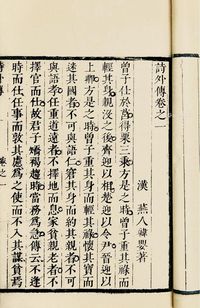 詩外傳卷之一
漢 燕人韓嬰著
曾子仕於莒得粟三秉方是之時曾子重其祿而
輕其身親沒之後齊迎以相楚迎以令尹晉迎以
上卿方是之時曾子重其身而輕其祿懷其寶而
迷其國者不可與語仁窘其身而約其親者不可
與語孝任重道遠者不擇地而息家貧親老者不
擇官而仕故君子橋褐趨時當務為急傳云不逢
時而仕任事而敦其慮為之使而不入其謀貧焉
詩外傳
卷之一